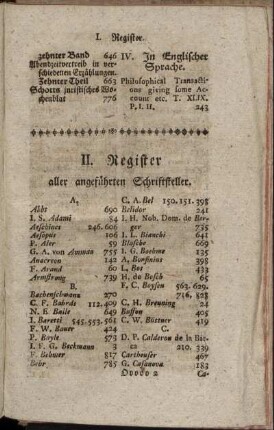 I. Register.
zehnter Band 646
Abendzeitvertreib in ver-
schiedenen Erzählungen.
Zehnter Theil 663
Schotts juristisches Wo-
chenblat 776
IV. In Englischer
Sprache.
Philosophical Transacti-
ons giving some Ac-
count etc. T. XLIX.
P. I. II. 243
II. Register
aller angeführten Schriftsteller.
A.
Abbt 690
I. S. Adami 84
Aeschines 246. 606
Aesopus 106
F. Aler 59
G. A. von Amman 755
Anacreon 142
F. Arand 60
Armstrong 739
B.
Bachenschwanz 270
C. F. Bahrdt 112. 409
N. E. Baile 649
I. Baretti 545. 553. 561
F. W. Bauer 424
P. Bayle 573
I. F. G. Beckmann 3
F. Behmer 817
Behr 785
C. A. Bel 150. 151. 398
Belidor 241
I. H. Nob. Dom. de Ber-
ger 735
I. L. Bianchi 641
Blasche 669
I. G. Boehme 135
A. Bonfinius 398
L. Bos 433
H. de Bosch 65
F. C. Boysen 563. 629.
716. 828
C. H. Breuning 24
Buffon 405
C. W. Büttner 419
C.
D. P. Calderon de la Bar-
ca 210. 339
Cartheuser 467
G. Casanova 183
Ooooo 2 Ca-